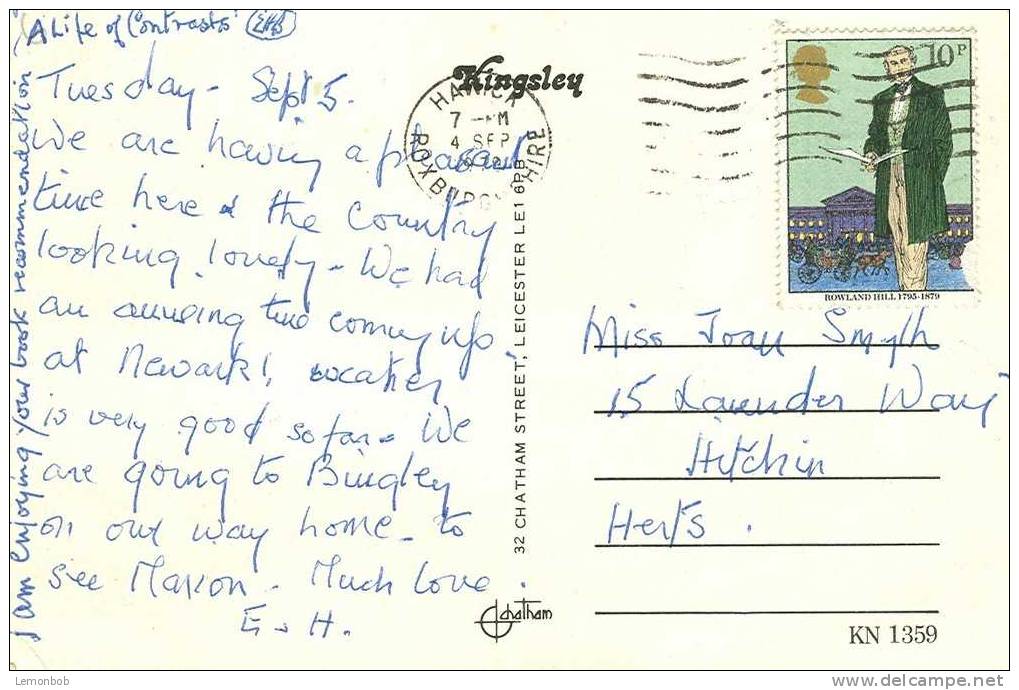 'A Life of Contrasts'
I am enjoying your book recommendation -
Tuesday - Sept 5.
We are having a pleasant
time here & the country
looking lovely - We had
an amusing time coming up
at Newark!
is very good so far - We
are going to Bingley
on our way home - to
see Marion - Much love.
E - H.
Kingsley
HAWICK
7 - PM
4 SEP
ROXBURGHSHIRE
32 CHATHAM STREET, LEICESTER LE1 6PB
Chatham
10P
ROWLAND HILL 1795-1879
Miss Joan Smyth
15 Lavender Way
Hitchin
Herts.
KN 1359
Lemonbob
www.delcampe.net